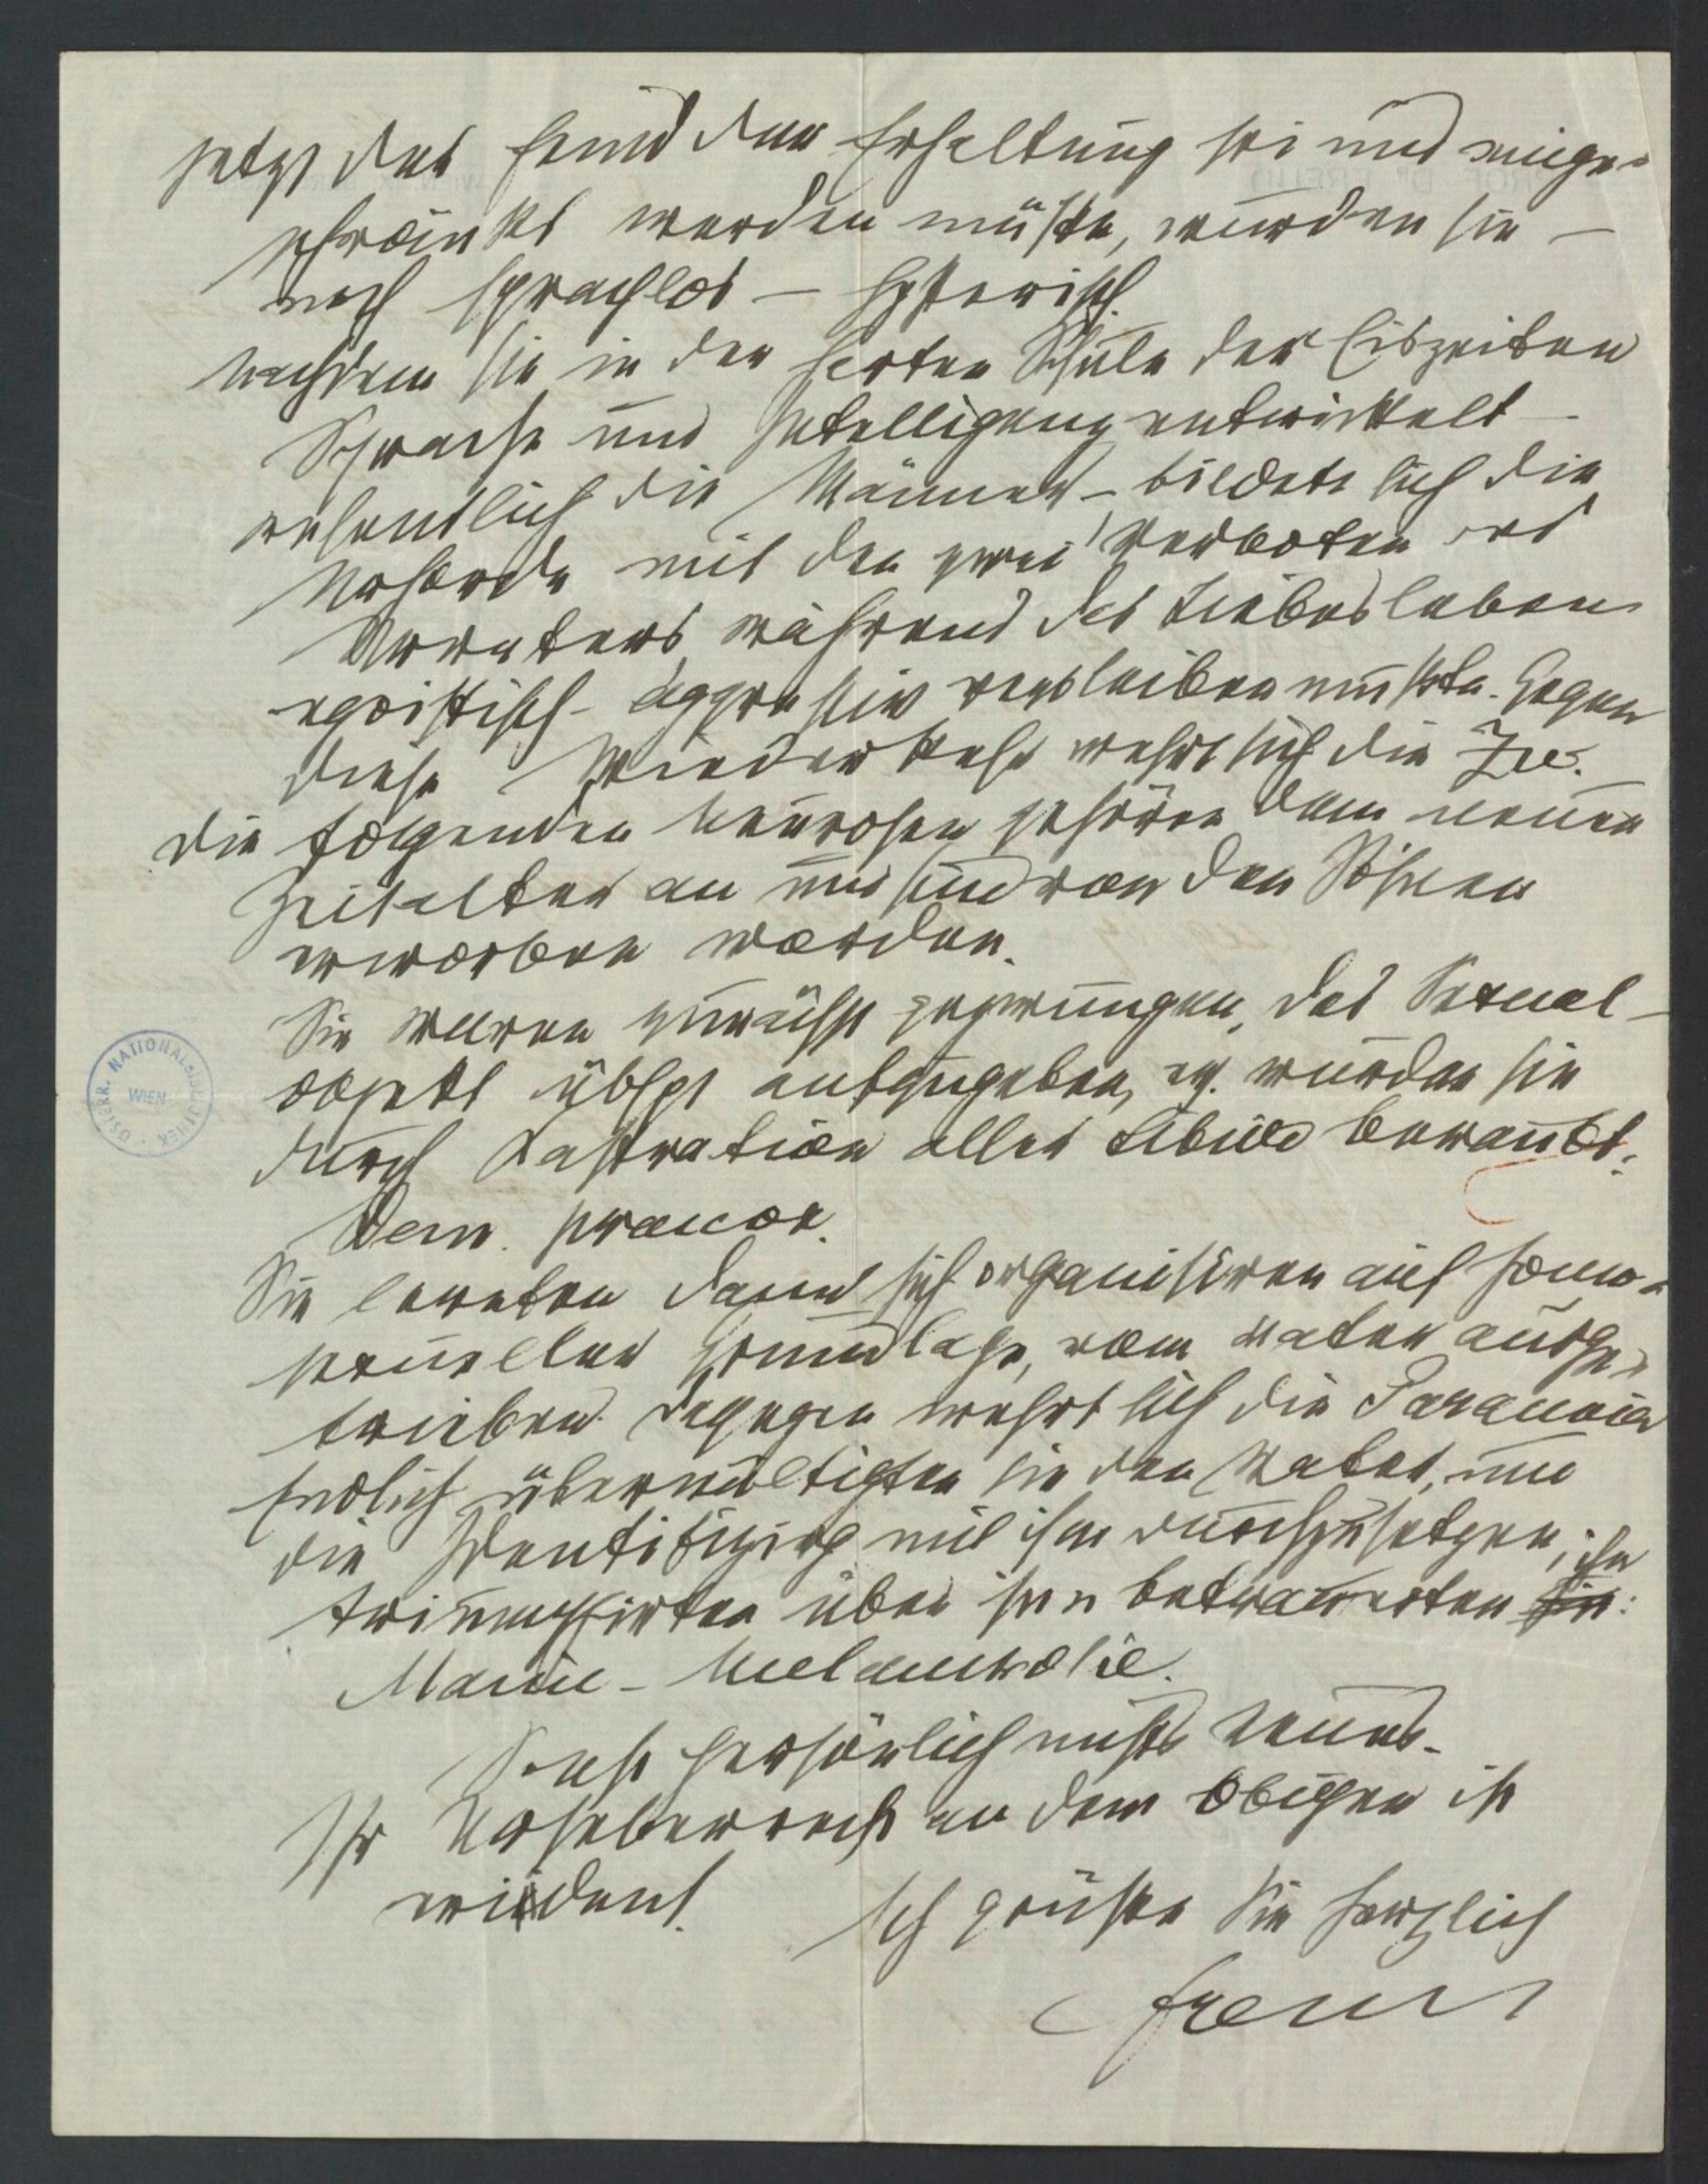 jetzt der Feind der Erhaltung sei und einge-
schränkt werden müßte, wurden sie –
noch sprachlos – hysterisch.
Nachdem sie in der harten Schule der Eiszeiten
Sprache und Intelligenz entwickelt –
wesentlich die Männer – bildete sich die
Urhorde mit den zwei Verboten des
Urvaters, während das Liebesleben
egoistisch-aggressiv verbleiben mußte. Gegen
diese Wiederkehr wehrt sich die Zw.
Die folgenden Neurosen gehören dem neuen
Zeitalter an und sind von den Söhnen
erworben worden.
Sie waren zunächst gezwungen, das Sexual-
objekt übhpt aufzugeben, ev. wurden sie
durch Kastration aller Libido beraubt:
Dem. praecox.
Sie lernten dann sich organisiren auf homo-
sexueller Grundlage, vom Vater ausge-
trieben. Dagegen wehrt sich die Paranoia
Endlich überwältigten sie den Vater, um
die Identifizirg mit ihm durchzusetzen,
triumphirten über ihn u betrauerten ihn:
Manie – Melancholie.
Sonst persönlich nichts Neues.
Ihr Urheberrecht an dem Obigen ist
evident. Ich grüße Sie herzlich
Freud
ÖSTERR. NATIONALBIBLIOTHEK
WIEN